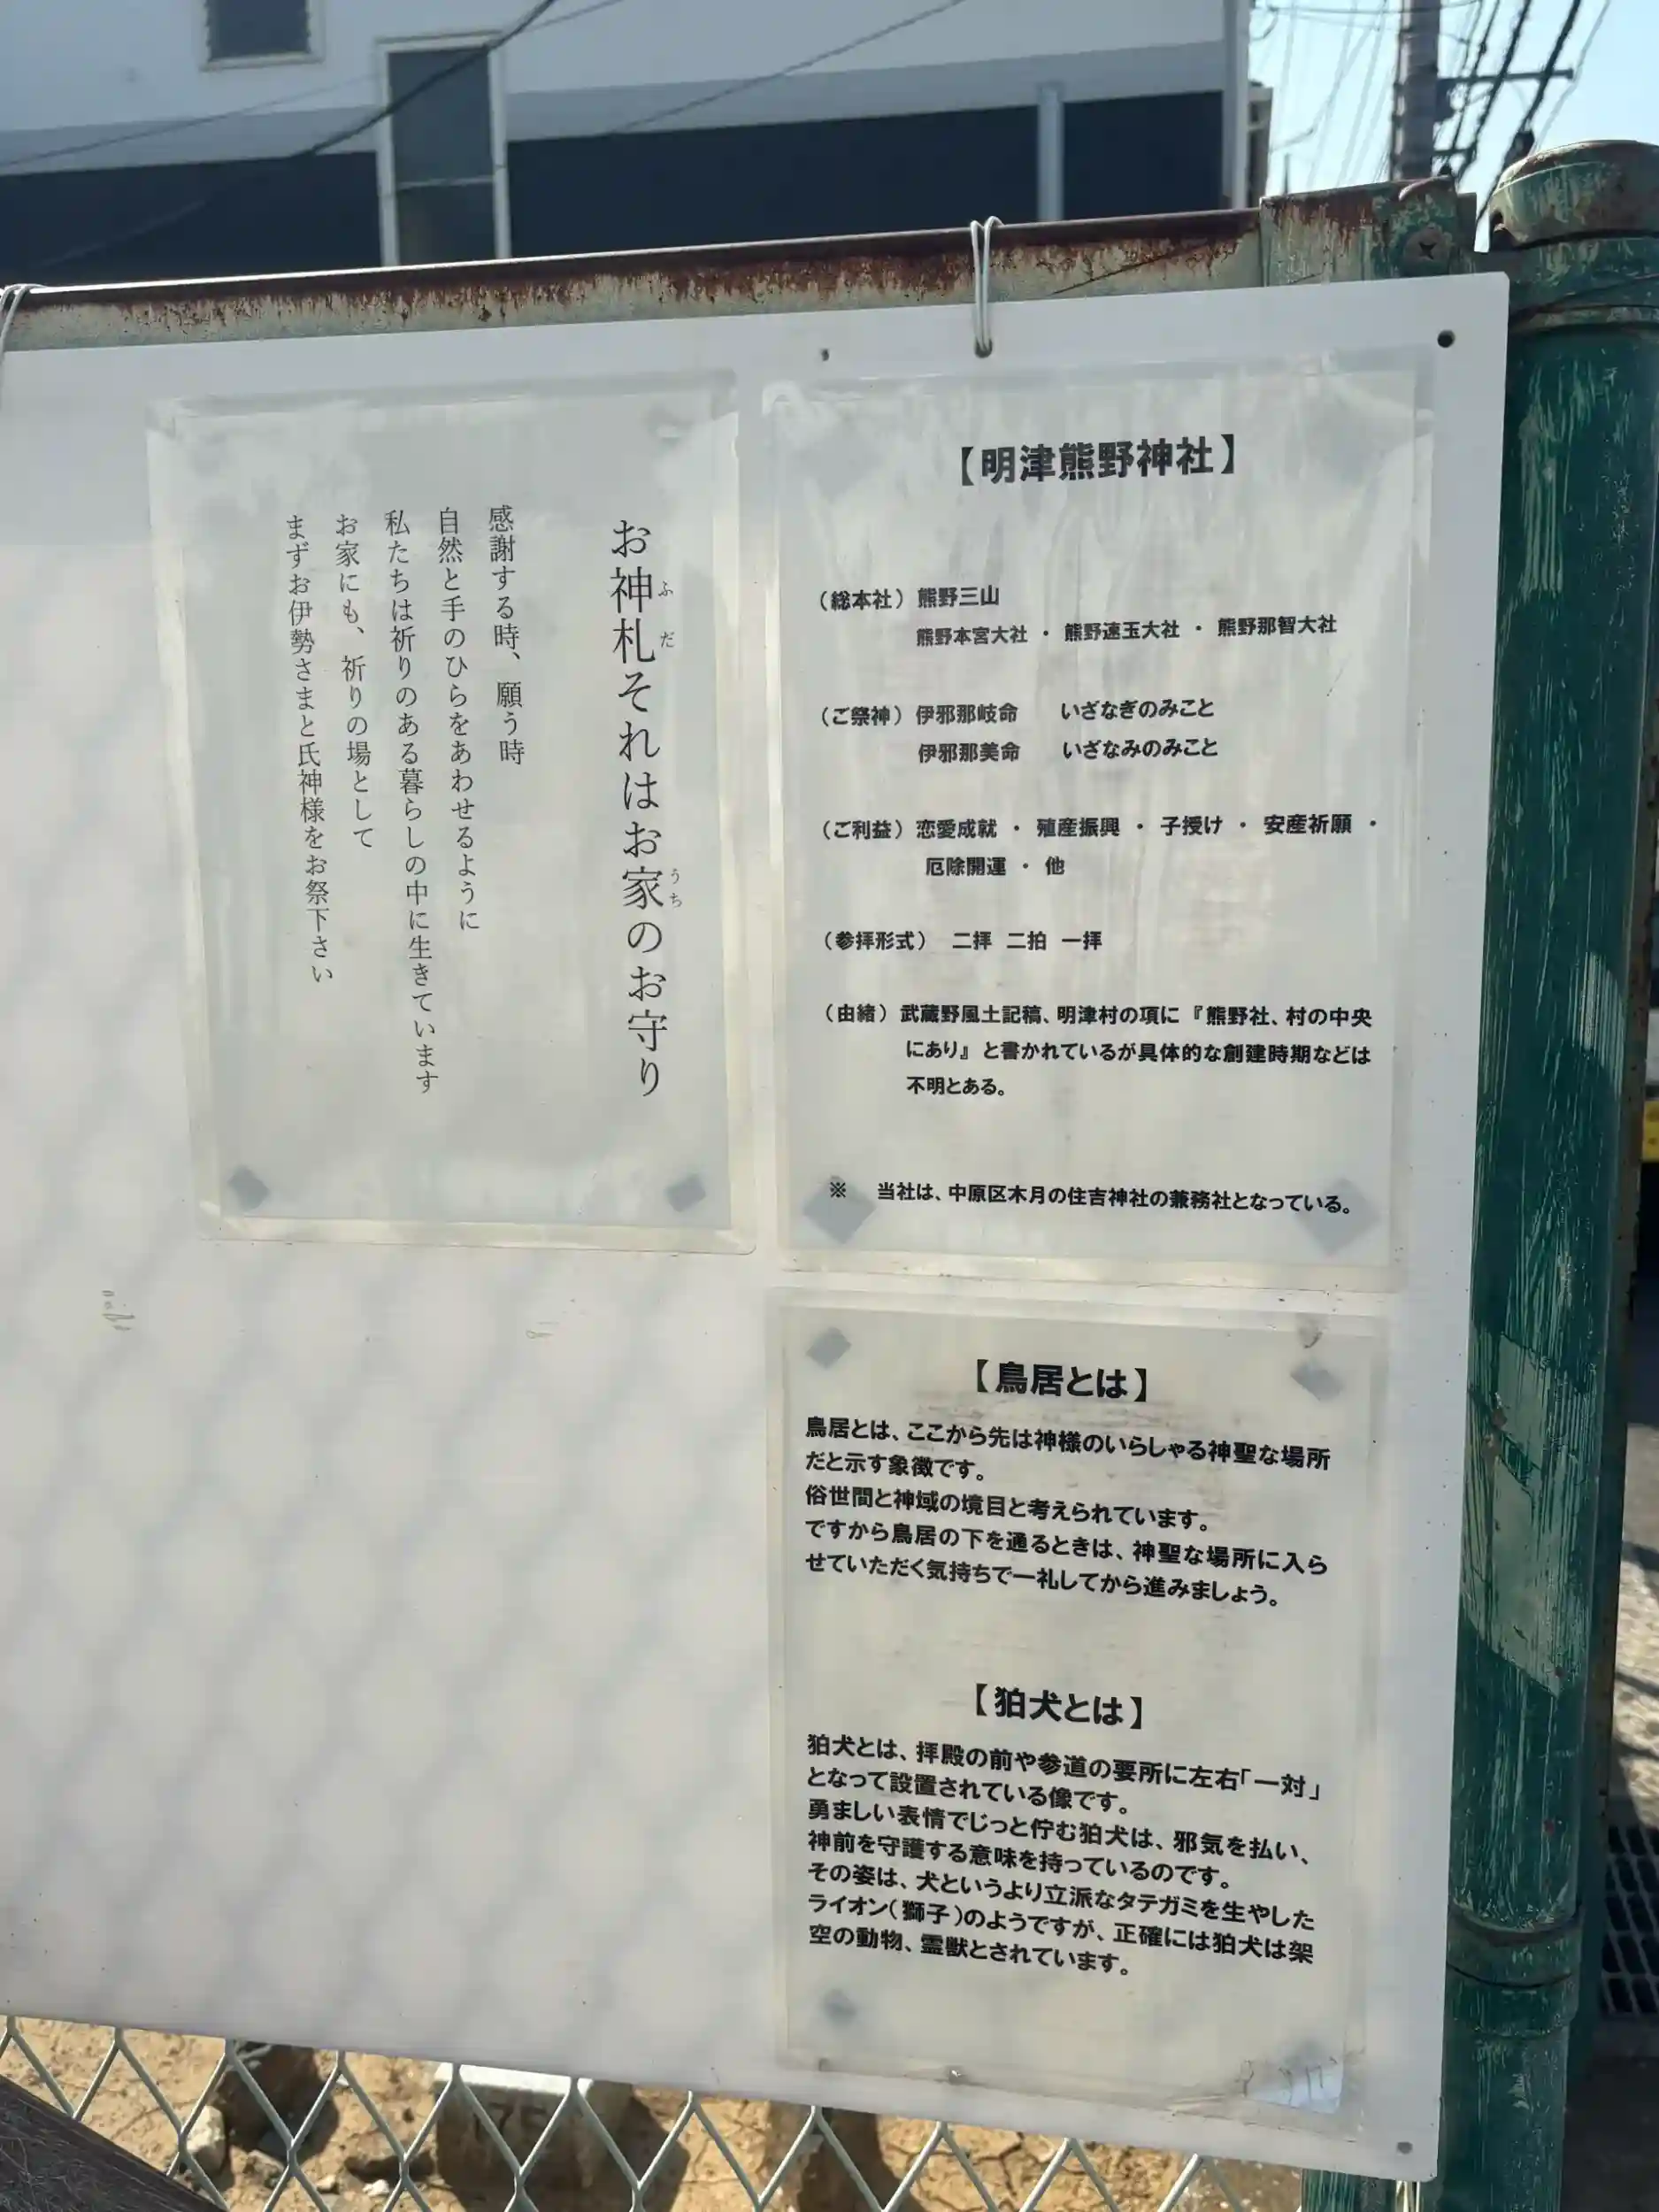 【明津熊野神社】
（総本社）熊野三山
熊野本宮大社 ・ 熊野速玉大社 ・ 熊野那智大社
（ご祭神）伊邪那岐命　いざなぎのみこと
伊邪那美命　いざなみのみこと
（ご利益）恋愛成就 ・ 殖産振興 ・ 子授け ・ 安産祈願 ・
厄除開運 ・ 他
（参拝形式）　二拝 二拍 一拝
（由緒）武蔵野風土記稿、明津村の項に『熊野社、村の中央
にあり』と書かれているが具体的な創建時期などは
不明とある。
※　当社は、中原区木月の住吉神社の兼務社となっている。
お神札それはお家のお守り
ふだ
うち
感謝する時、願う時
自然と手のひらをあわせるように
私たちは祈りのある暮らしの中に生きています
お家にも、祈りの場として
まずお伊勢さまと氏神様をお祭下さい
【鳥居とは】
鳥居とは、ここから先は神様のいらしゃる神聖な場所
だと示す象徴です。
俗世間と神域の境目と考えられています。
ですから鳥居の下を通るときは、神聖な場所に入ら
せていただく気持ちで一礼してから進みましょう。
【狛犬とは】
狛犬とは、拝殿の前や参道の要所に左右「一対」
となって設置されている像です。
勇ましい表情でじっと佇む狛犬は、邪気を払い、
神前を守護する意味を持っているのです。
その姿は、犬というより立派なタテガミを生やした
ライオン（獅子）のようですが、正確には狛犬は架
空の動物、霊獣とされています。